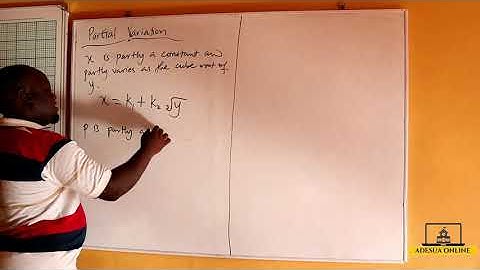 Partial Variation
x is partly a constant and
partly varies as the cube root of
y.
x = k₁ + k₂ ₃√y
P is partly a
ADESUA ONLINE